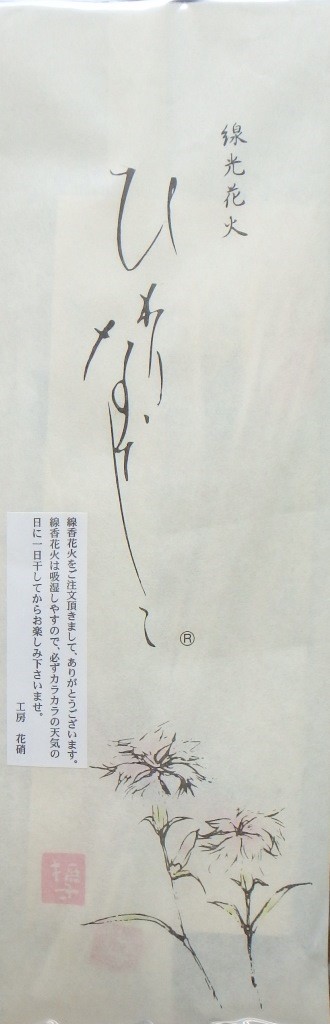 線光花火
ひかりなでしこ®
線香花火をご注文頂きまして、ありがとうございます。
線香花火は吸湿しやすので、必ずカラカラの天気の
日に一日干してからお楽しみ下さいませ。
工房 花硝